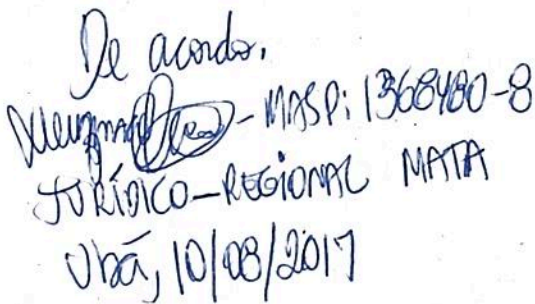 De acordo.
- MASP: 1368480-8
JURÍDICO - REGIONAL MATA
Ubá, 10/08/2017